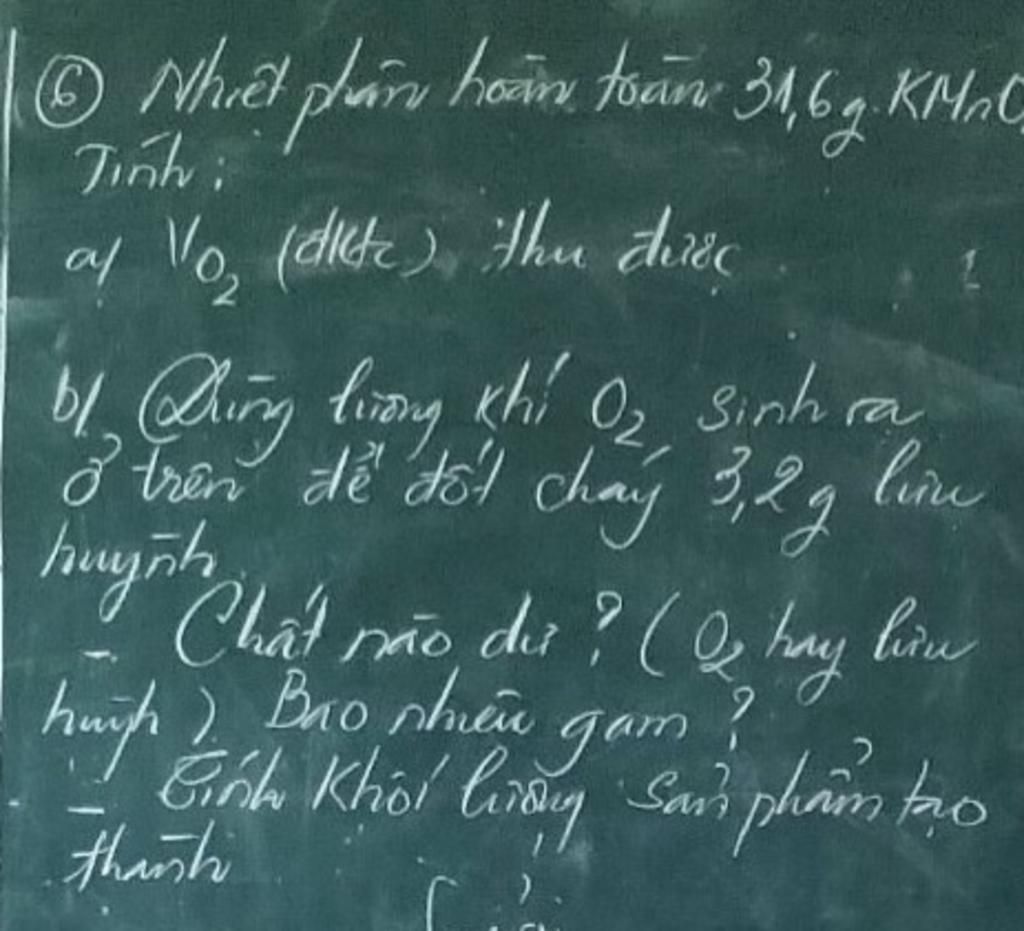 ⑥ Nhiệt phân hoàn toàn 31,6g KMnO
Tính:
a/ VO₂ (đktc) thu được
b/ Dùng lượng khí O₂ sinh ra
ở trên để đốt cháy 3,2g lưu
huỳnh.
- Chất nào dư? (O₂ hay lưu
huỳnh) Bao nhiêu gam?
- Tính khối lượng sản phẩm tạo
thành